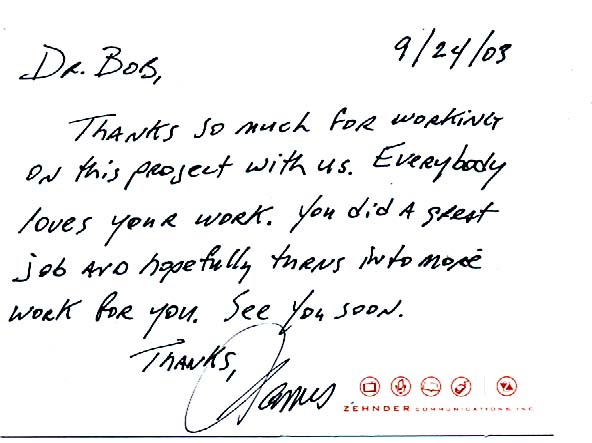 9/24/03
Dr. Bob,
Thanks so much for working
on this project with us. Everybody
loves your work. You did a great
job and hopefully turns into more
work for you. See you soon.
Thanks,
James
ZEHNDER COMMUNICATIONS INC